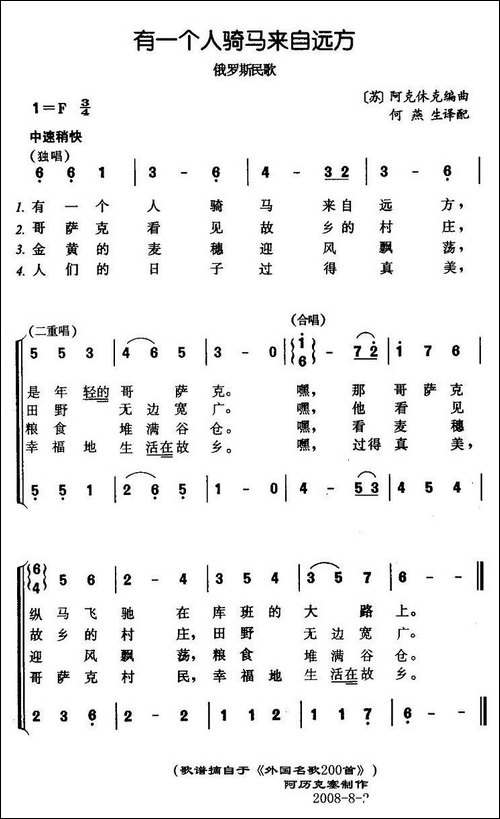 有一个人骑马来自远方
俄罗斯民歌
1=F 3/4
〔苏〕阿克休克编曲
何燕生译配
中速稍快
(独唱)
6 6 1 | 3 - 6 | 4 - 32 | 3 - 6 |
1. 有一个人骑马来自远方，
2. 哥萨克看见故乡的村庄，
3. 金黄的麦穗迎风飘荡，
4. 人们的日子过得真美，
(二重唱) (合唱)
5 5 3 | 4 6 5 | 3 - 0 | i 6 - 7 2 | i 7 6 |
是年轻的哥萨克。嘿，那哥萨克
田野无边宽广。嘿，他看见
粮食堆满谷仓。嘿，看麦穗
幸福地生活在故乡。嘿，过得真美，
5 5 1 | 2 6 5 | 1 - 0 | 4 - 5 3 | 4 5 4 |
6 4 5 6 | 2 - 4 | 5 5 4 | 3 5 7 | 6 - - |
纵马飞驰在库班的大路上。
故乡的村庄，田野无边宽广。
迎风飘荡，粮食堆满谷仓。
哥萨克村民，幸福地生活在故乡。
2 3 6 | 2 - 2 | 1 1 2 | 1 1 7 | 6 - - |
(歌谱摘自于《外国名歌200首》)
阿历克塞制作
2008-8-